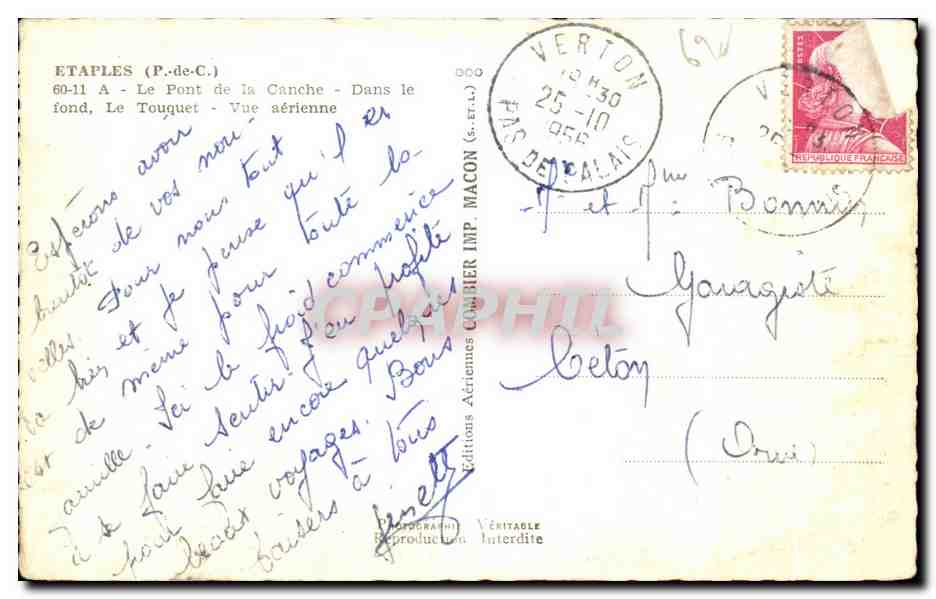 ETAPLES (P.-de-C.)
60-11 A - Le Pont de la Canche - Dans le
fond, Le Touquet - Vue aérienne
Espérons avoir
bientôt de vos nou-
velles. Pour nous tout
va bien et je pense qu'il en
est de même pour toute la
famille. Ici le froid commence
à se faire sentir j'en profite
pour faire encore quelques
beaux voyages. Bons
baisers à tous
Ginette
Editions Aériennes COMBIER IMP. MACON (S.-ET-L.)
PHOTOGRAPHIE VÉRITABLE
Reproduction Interdite
VERTON
18H30
25-10
1956
PAS DE CALAIS
POSTES
REPUBLIQUE FRANÇAISE
Mr et Mme
Garagiste
Céton
(Orne)
CPARPHIL